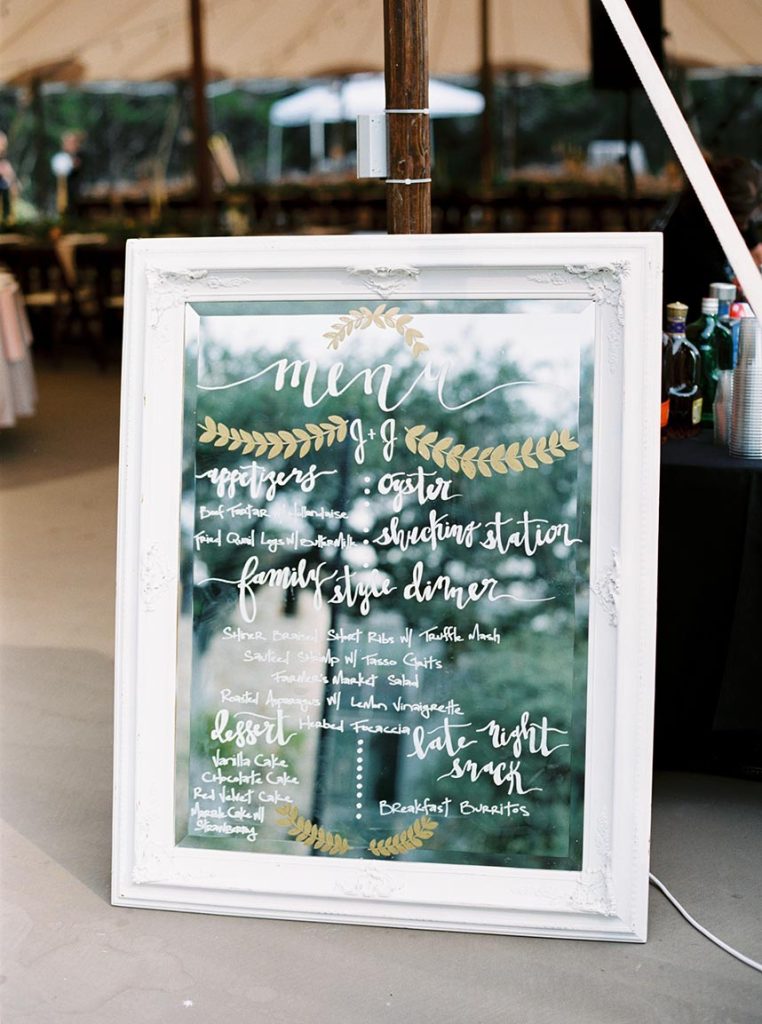 menu
J + J
appetizers
Beef Tartar w/ Hollandaise
Fried Quail Legs w/ Buttermilk
oyster
shucking station
family style dinner
Shiner Braised Short Ribs w/ Truffle Mash
Sauteed Shrimp w/ Tasso Grits
Farmer's Market Salad
Roasted Asparagus w/ Lemon Vinaigrette
Herbed Focaccia
dessert
Vanilla Cake
Chocolate Cake
Red Velvet Cake
Marble Cake w/
Strawberry
late night
snack
Breakfast Burritos